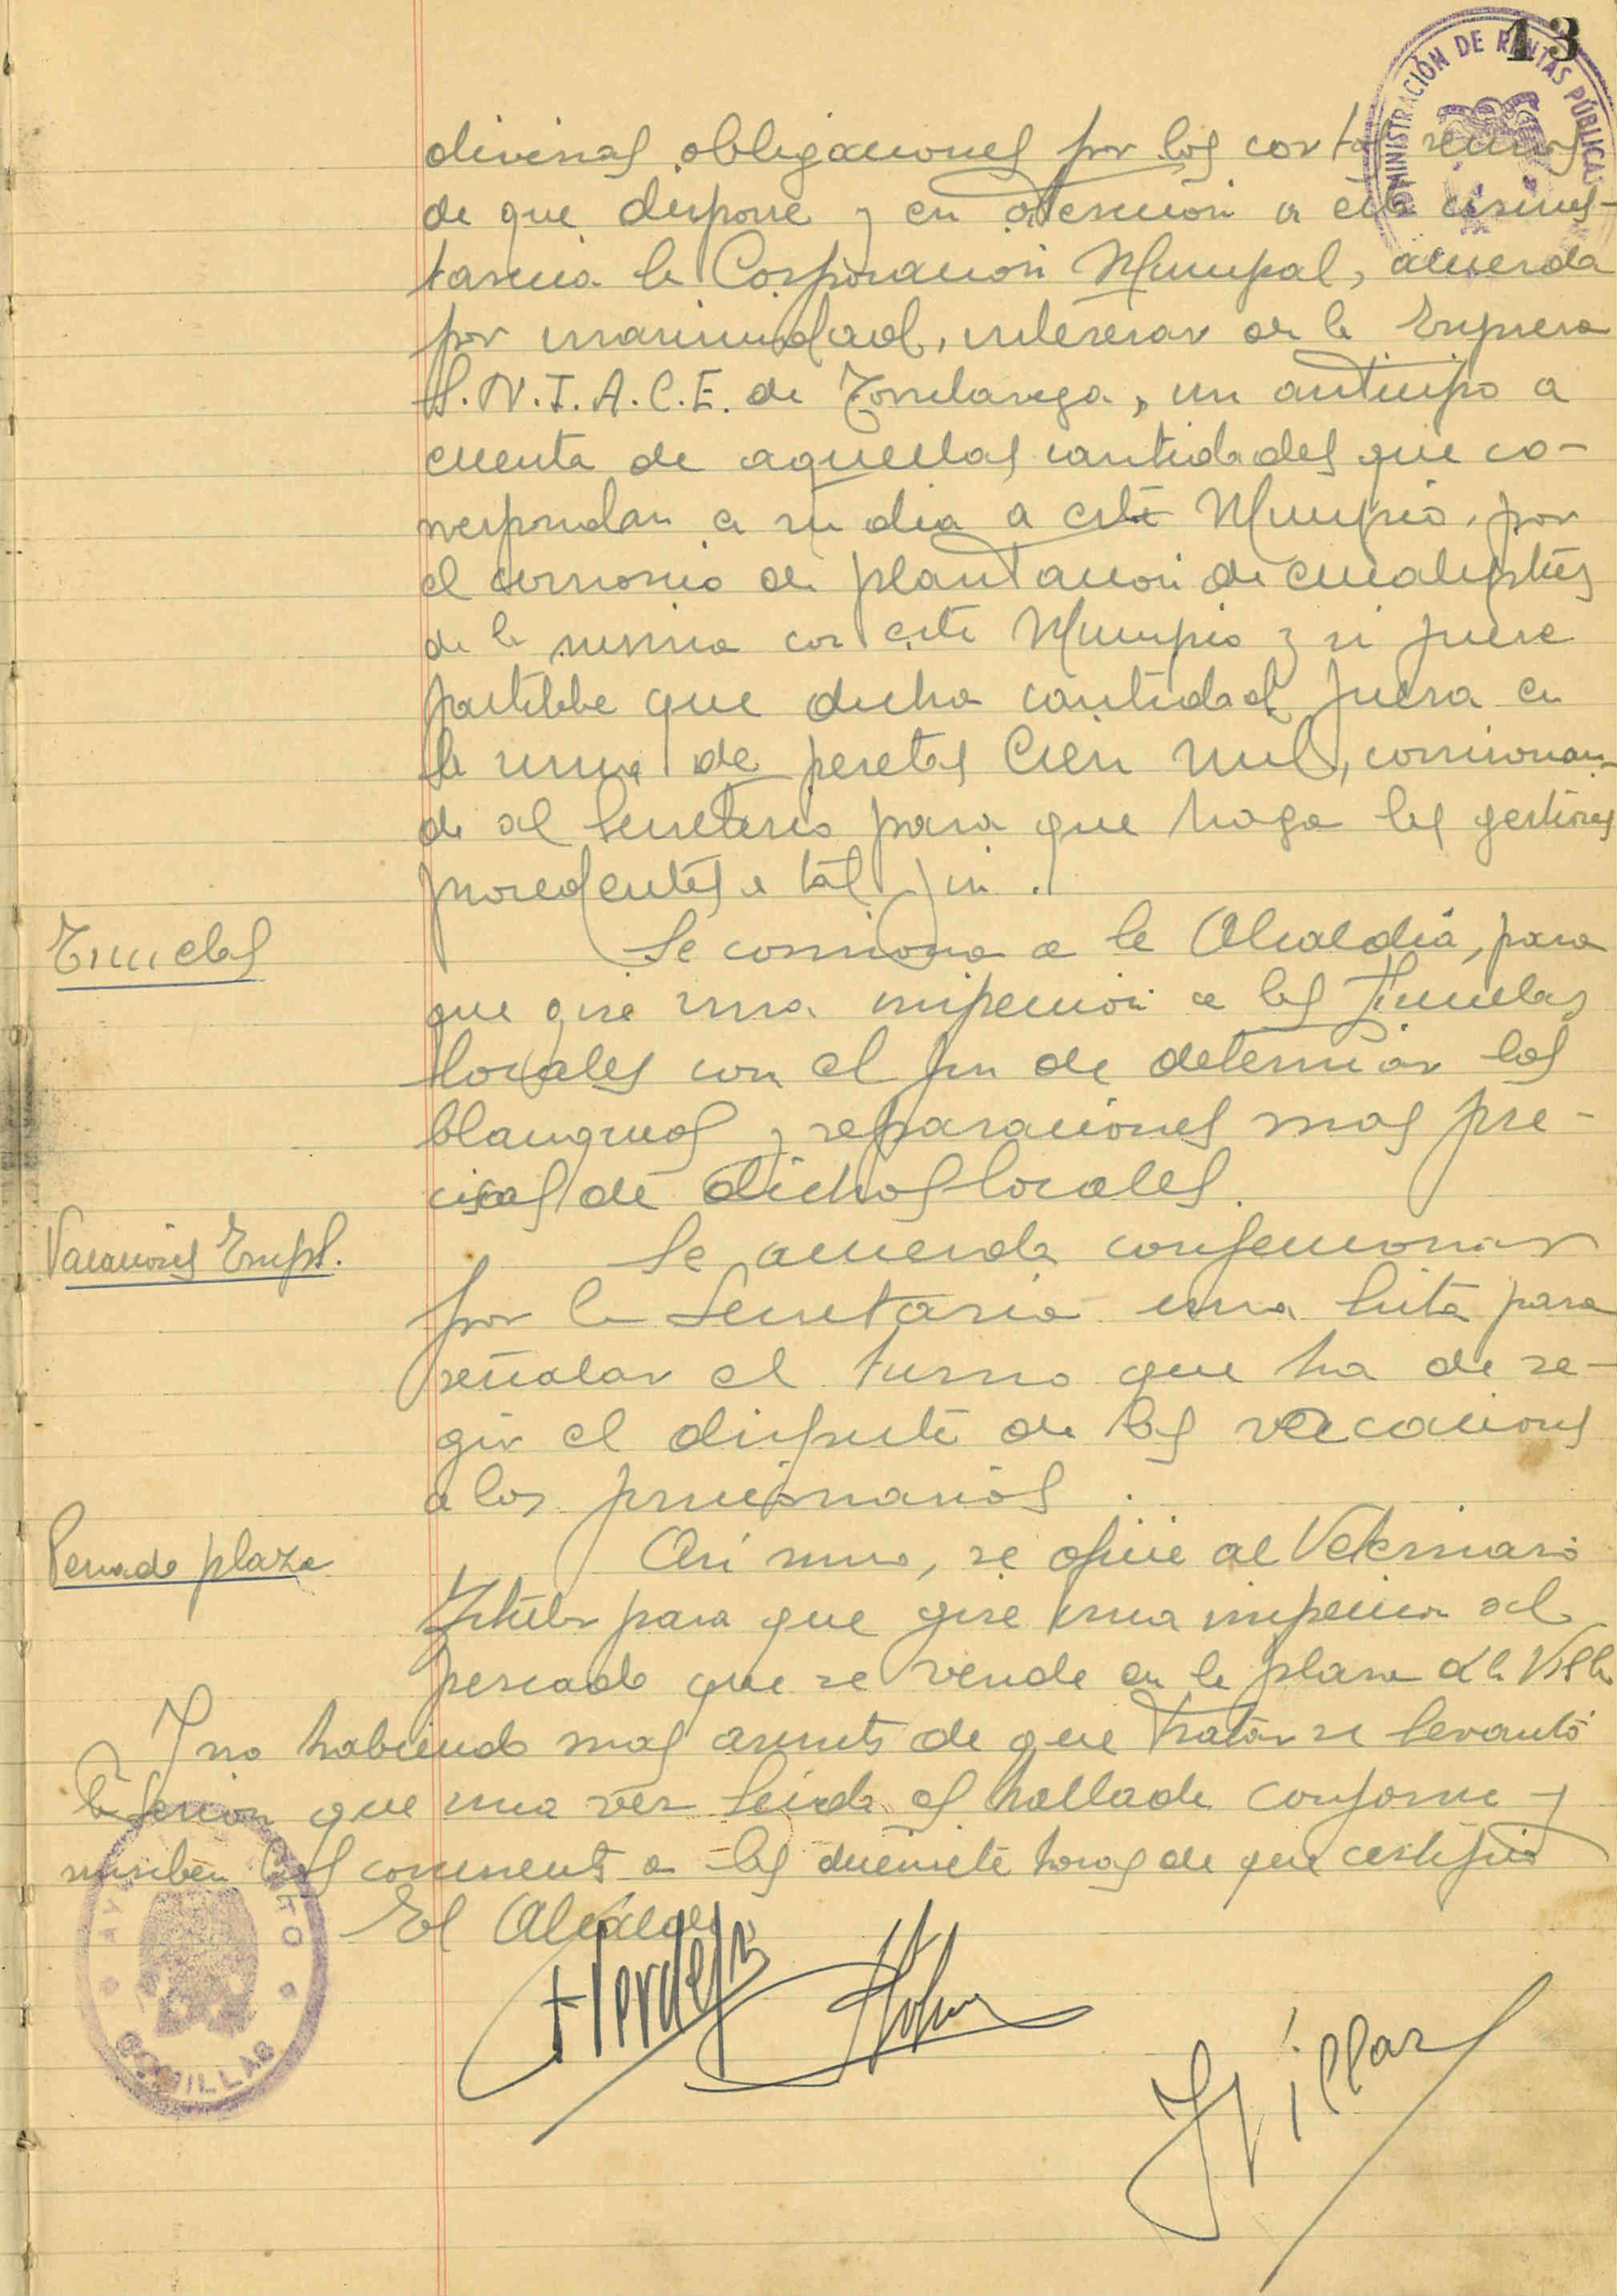 13
ADMINISTRACIÓN DE RENTAS PÚBLICAS
diversas obligaciones por los cortos
de que dispone y en atencion a esta circuns-
tancia la Corporacion Municipal, acuerda
por unanimidad, interesar de la Empresa
S.N.I.A.C.E. de Torrelavega, un anticipo a
cuenta de aquellas cantidades que co-
rrespondan a su dia a este Municipio, por
el consorcio de plantacion de eucaliptus
de la misma con este Municipio y si fuere
partible que dicha cantidad fuera en
la suma de pesetas Cien mil, comisionan-
do al Secretario para que haga las gestiones
procedentes a tal fin.
Escuelas
Se comisiona a la Alcaldia, para
que gire una inspeccion a las Escuelas
locales con el fin de determinar los
blanqueos y reparaciones mas pre-
cisas de dichos locales.
Vacaciones Empl.
Se acuerda confeccionar
por la Secretaria una lista para
señalar el turno que ha de re-
gir el disfrute de las vacaciones
a los funcionarios.
Pescado plaza
Asi mismo, se oficie al Veterinario
Titular para que gire una inspeccion al
pescado que se vende en la plaza de la Villa
Y no habiendo mas asuntos de que tratar se levantó
la sesion que una vez leida es hallada conforme y
suscriben los concurrents a las diecisiete horas de que certifico
El Alcalde
AYUNTAMIENTO
COMILLAS
JVillar